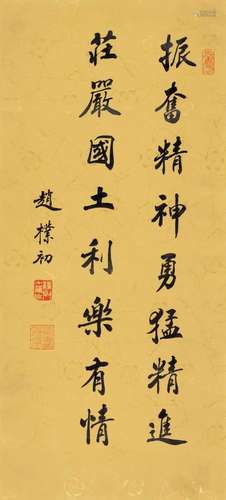 振奮精神勇猛精進
莊嚴國土利樂有情
趙樸初